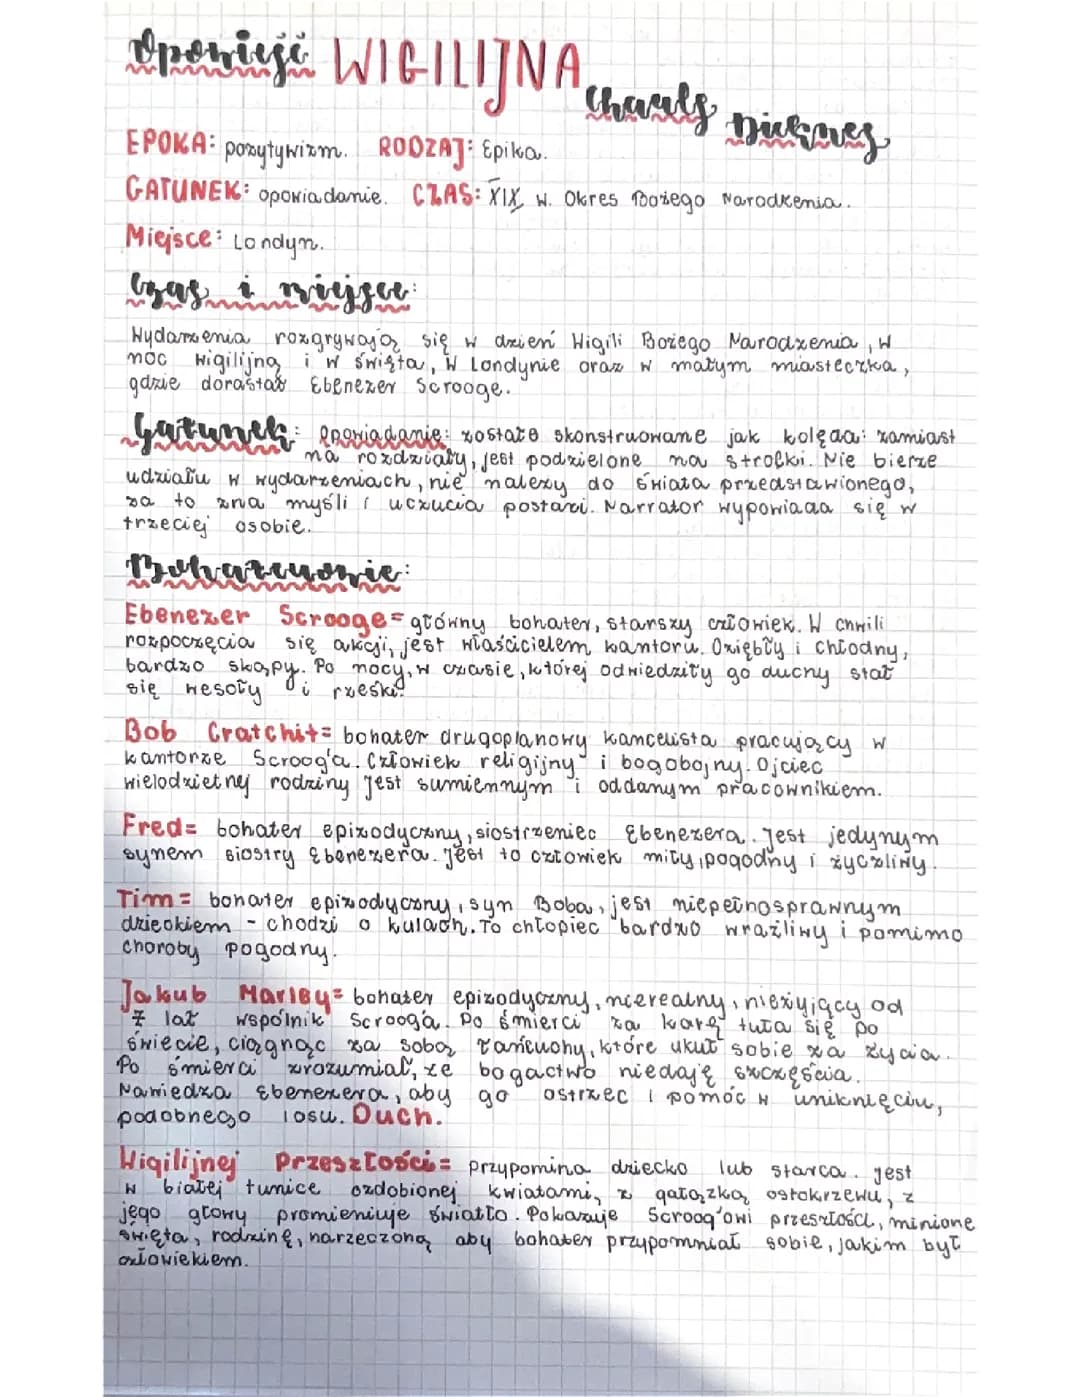 Opowieść WIGILIJNA
Charles Dickens
EPOKA: pozytywizm. RODZAJ: Epika.
GATUNEK: opowiadanie. CZAS: XIX w. Okres Bożego Narodzenia.
Miejsce: Londyn.
Czas i miejsce:
Wydarzenia rozgrywają się w dzień Wigili Bożego Narodzenia, w
noc wigilijną i w święta, w Londynie oraz w małym miasteczka,
gdzie dorastał Ebenezer Scrooge.
Gatunek: Opowiadanie: zostało skonstruowane jak kolęda: zamiast
na rozdziały, jest podzielone na strofki. Nie bierze
udziału w wydarzeniach, nie należy do świata przedstawionego,
za to zna myśli i uczucia postaci. Narrator wypowiada się w
trzeciej osobie.
Bohaterowie:
Ebenezer Scrooge= główny bohater, starszy człowiek. W chwili
rozpoczęcia się akcji, jest właścicielem kantoru. Oziębły i chłodny,
bardzo skąpy. Po nocy, w czasie, której odwiedziły go duchy stał
się wesoły i rześki.
Bob Cratchit= bohater drugoplanowy kancelista pracujący w
kantorze Scroog'a. Człowiek religijny i bogobojny. Ojciec
wielodzietnej rodziny Jest sumiennym i oddanym pracownikiem.
Fred= bohater epizodyczny, siostrzeniec Ebenezera. Jest jedynym
synem siostry Ebenezera. Jest to człowiek miły, pogodny i życzliwy.
Tim= bohater epizodyczny, syn Boba, jest niepełnosprawnym
dzieckiem - chodzi o kulach. To chłopiec bardzo wrażliwy i pomimo
choroby pogodny.
Jakub Marley= bohater epizodyczny, nierealny, nieżyjący od
7 lat wspólnik Scrooga. Po śmierci za karę tuła się po
świecie, ciągnąc za sobą łańcuchy, które ukuł sobie za życia.
Po śmierci zrozumiał, że bogactwo niedaję szczęścia.
Nawiedza Ebenezera, aby go ostrzec i pomóc w uniknięciu,
podobnego losu. Duch.
Wigilijnej Przeszłości= przypomina dziecko lub starca. Jest
w białej tunice ozdobionej kwiatami, z gałązką ostokrzewu, z
jego głowy promieniuje światło. Pokazuje Scroog'owi przeszłość, minione
święta, rodzinę, narzeczoną aby bohater przypomniał sobie, jakim był
człowiekiem.